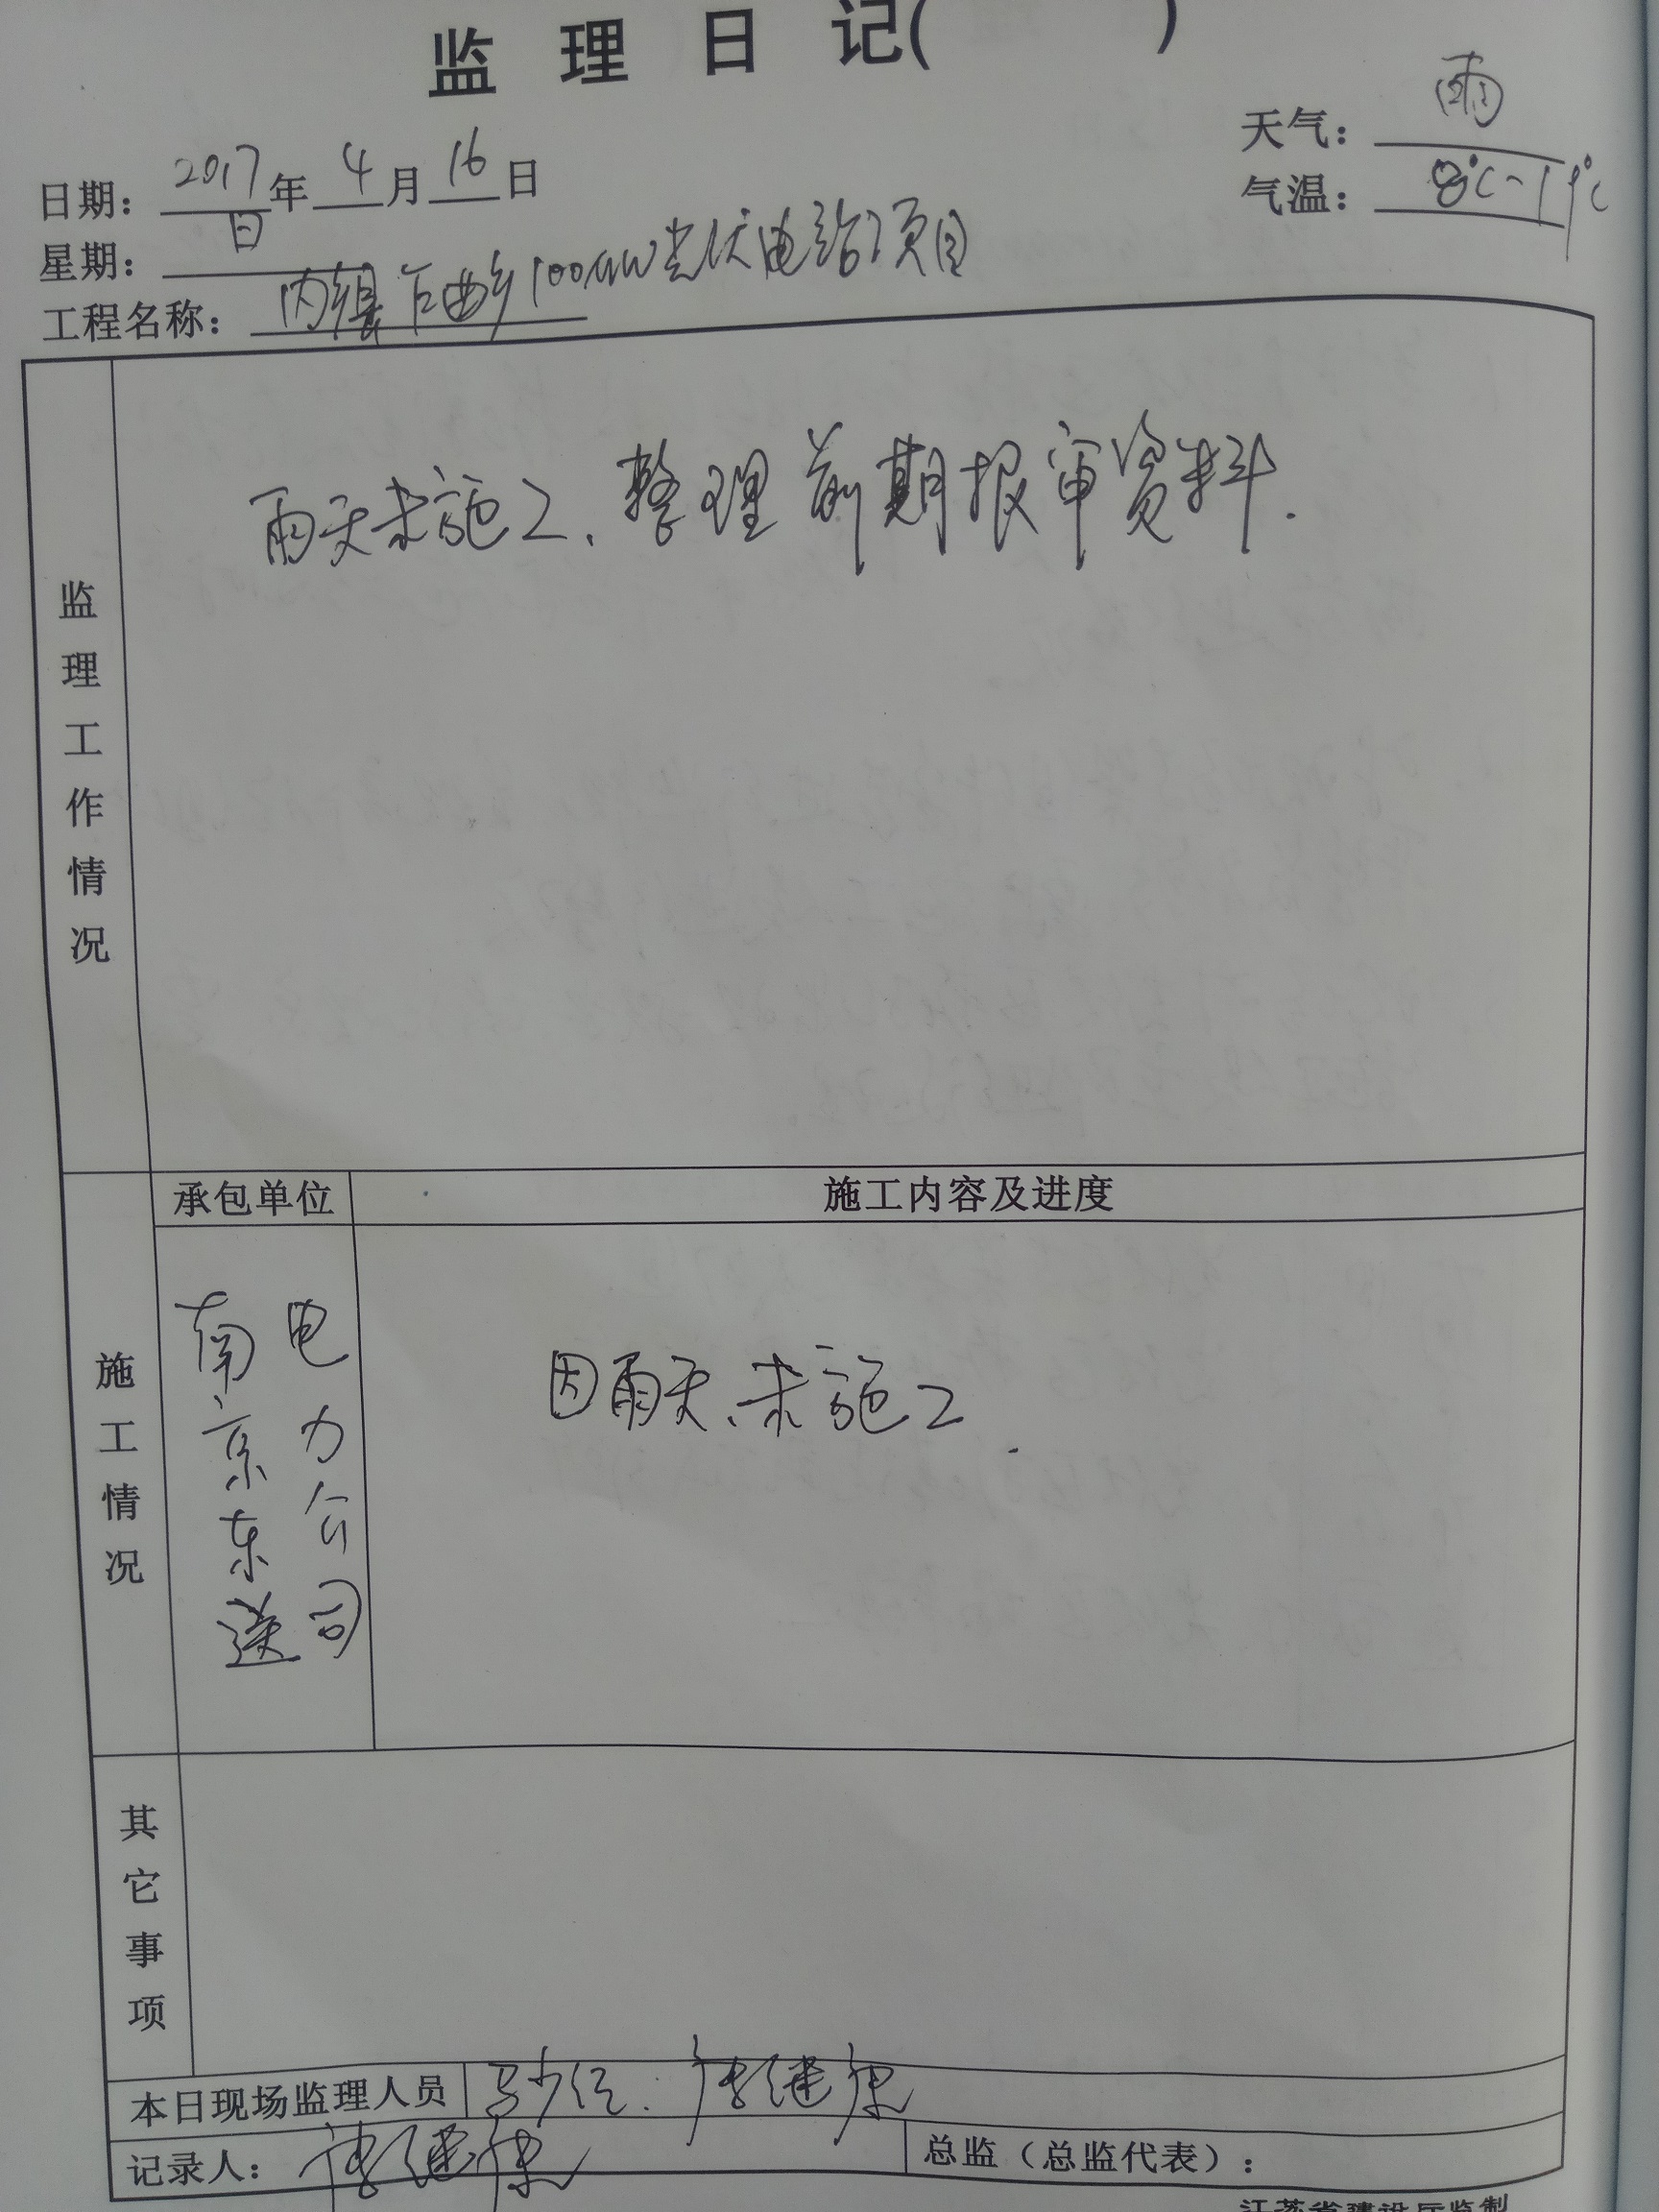 监理日记( )
天气: 雨
日期: 2017年4月16日
气温: 8℃~19℃
星期: 日
工程名称: 内乡县 曲乡100MW光伏电站项目
监理工作情况
雨天未施工、整理前期报审资料.
承包单位 施工内容及进度
施工情况
南京东送电力公司
因雨天、未施工.
其它事项
本日现场监理人员
记录人:
总监（总监代表）:
江苏省建设厅监制